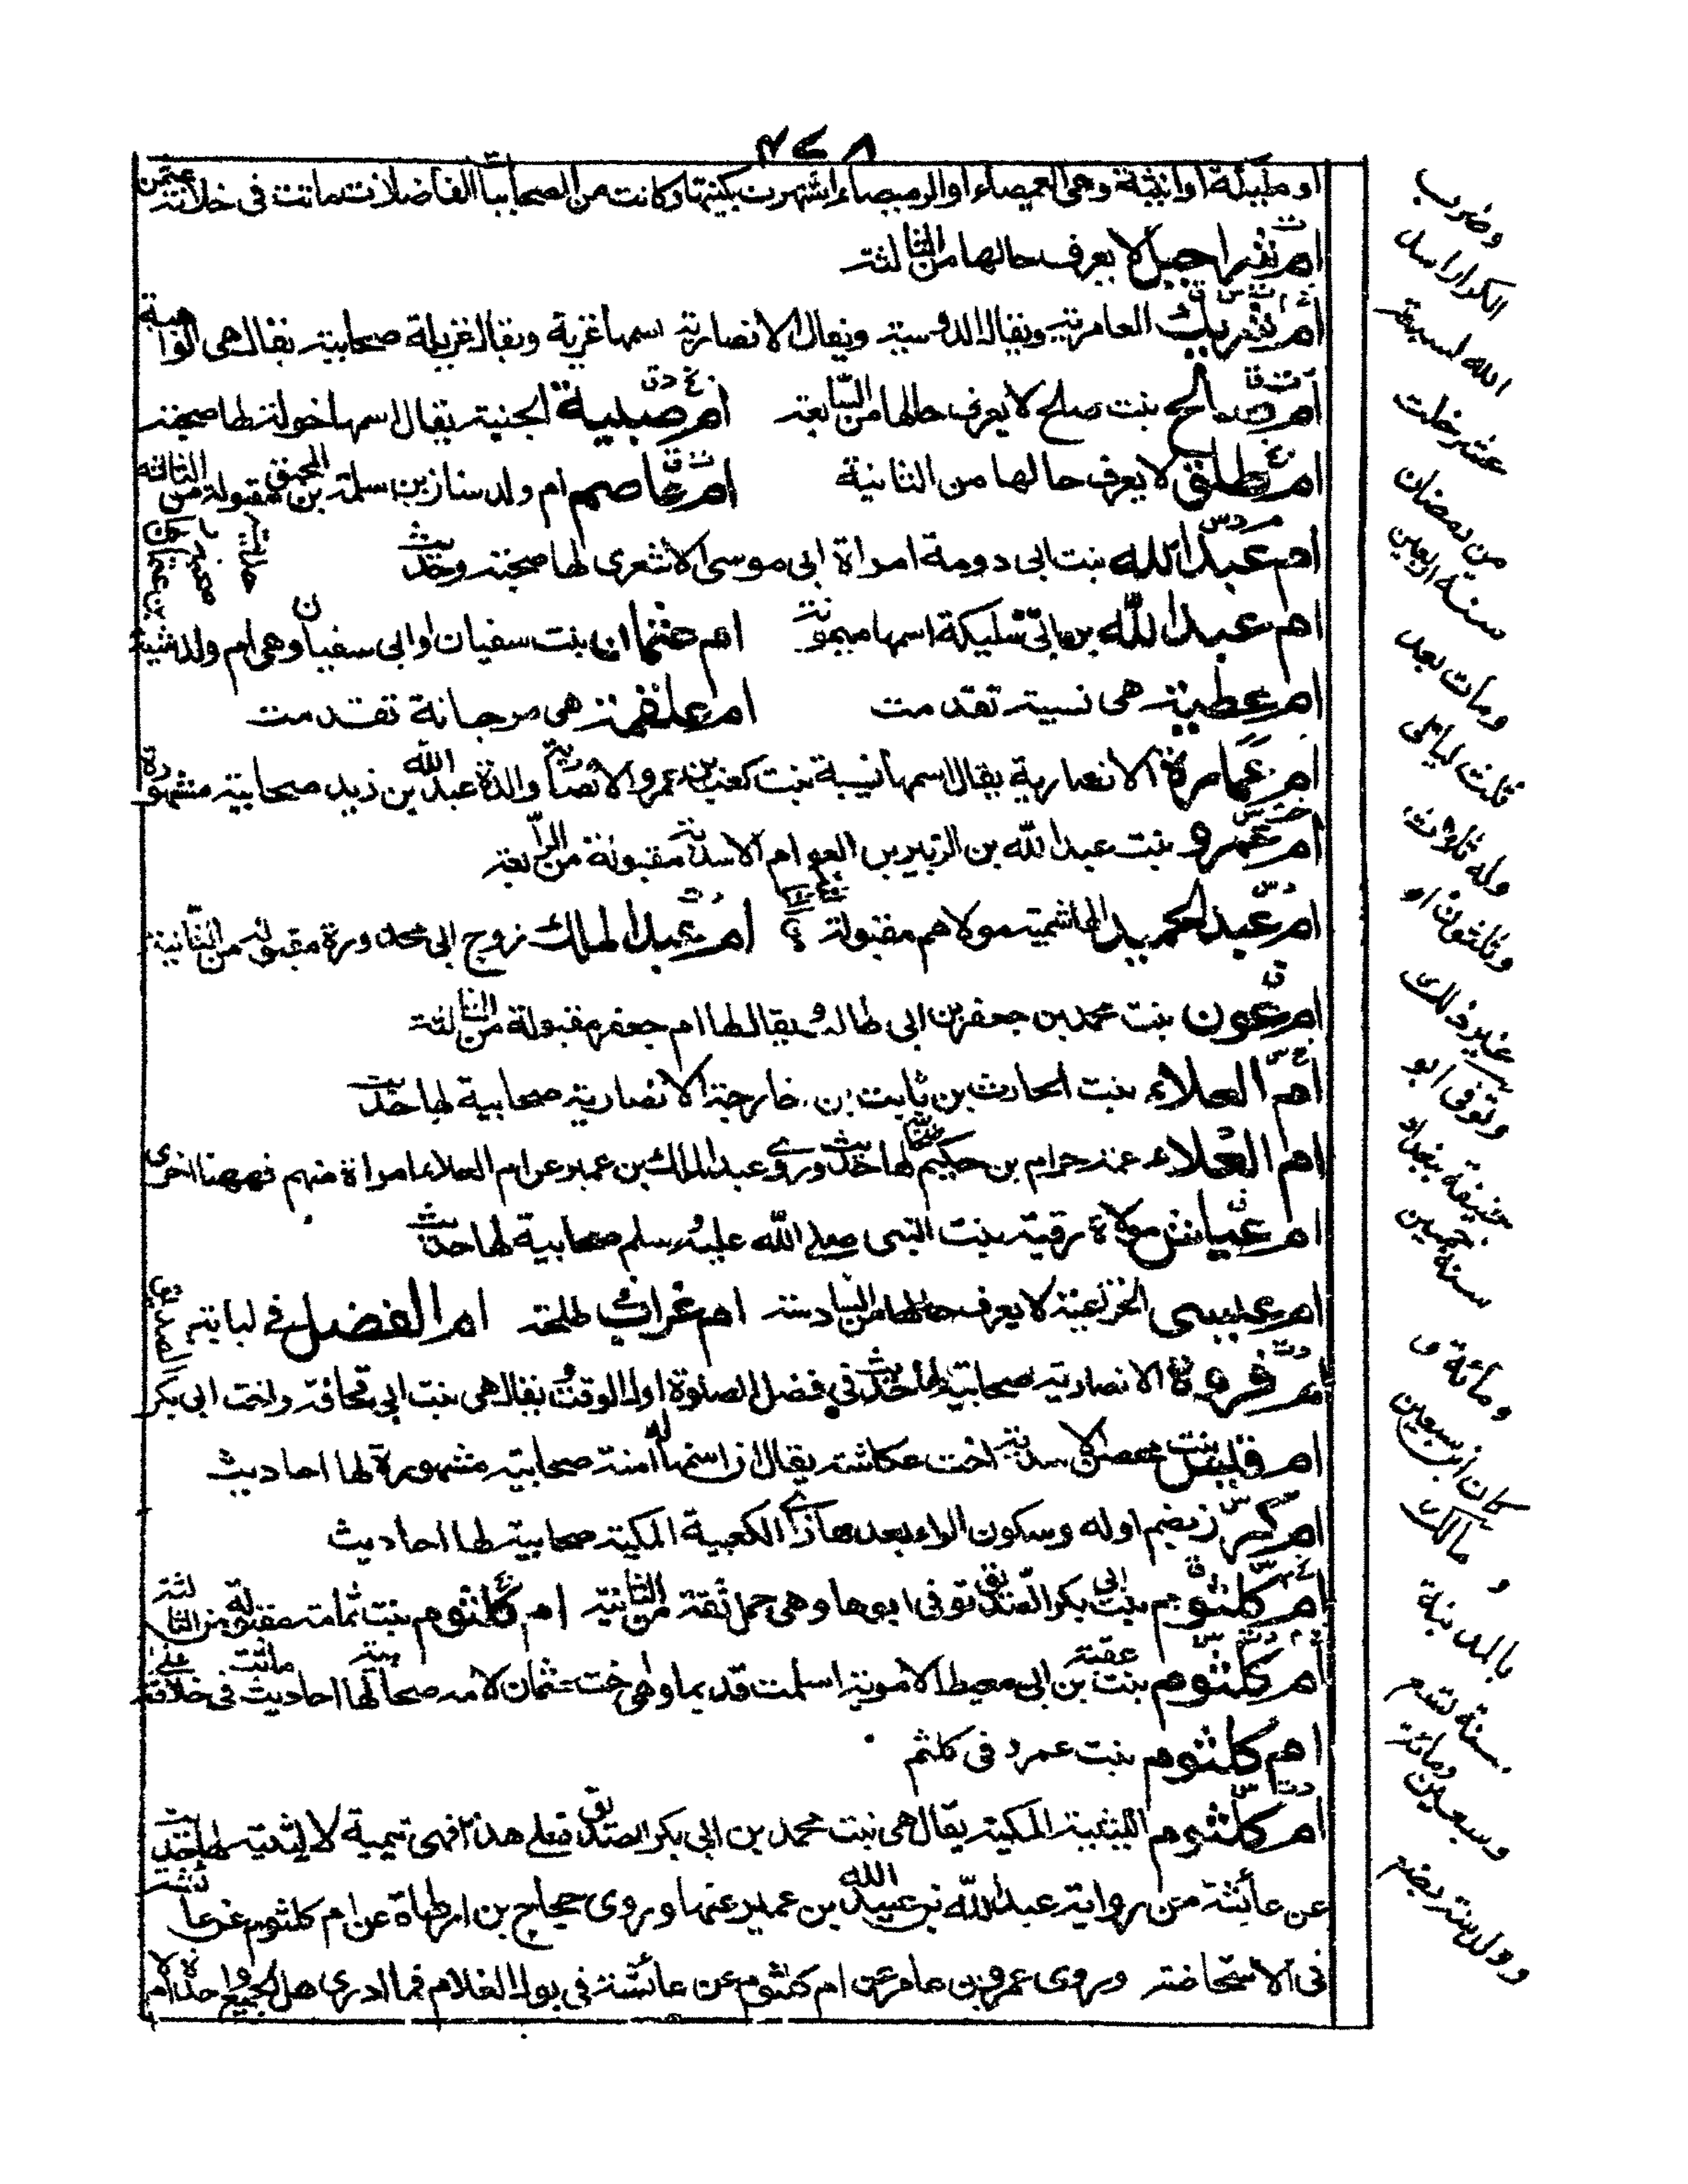 ٤٧٨
او مليكة او انيثة وهى الغميصاء او الرميصاء اشتهرت بكنيتها وكانت من الصحابيات الفاضلات ماتت فى خلافة عثمن
ام شراحيل لا يعرف حالها من الثالثة
ام شريك العامرية ويقال الدوسية ويقال الانصارية اسمها غزية ويقال غزيلة صحابية يقال هى الواهبة
ام صالح بنت صلح لا يعرف حالها من السابعة ام صبية الجهنية يقال اسمها خولة لها صحبة
ام طلق لا يعرف حالها من الثانية ام عاصم ام ولد سنان بن سلمة بن المحبق مقبولة من الثالثة
ام عبد الله بنت ابى دومة امراة ابى موسى الاشعرى لها صحبة وحديث
ام عبد الله بن ابى مليكة اسمها ميمونة ام عثمان بنت سفيان او ابى سفيان وهى ام ولد شيبة
بن عثمان صحابية لها حديث
ام عطية هى نسيبة تقدمت ام علقمة هى مرجانة تقدمت
ام عمارة الانصارية يقال اسمها نسيبة بنت كعب بن عمرو الانصارية والدة عبد الله بن زيد صحابية مشهورة
ام عمرو بنت عبد الله بن الزبير بن العوام الاسدية مقبولة من الرابعة
ام عبد الحميد الهاشمية مولاهم مقبولة ام عبد الملك زوج ابى محذورة مقبولة من الثانية
ام عون بنت محمد بن جعفر بن ابى طالب ويقال لها ام جعفر مقبولة من الثالثة
ام العلاء بنت الحارث بن ثابت بن خارجة الانصارية صحابية لها حديث
ام العلاء عمة حرام بن حكيم صحابية لها حديث وروى عبد الملك بن عمير عن ام العلاء امراة منهم فهى هنا اخرى
ام عياش مولاة رقية بنت النبى صلى الله عليه وسلم صحابية لها حديث
ام عيسى الخزاعية لا يعرف حالها من السادسة ام غراب طلحة ام الفضل فى لبابة
ام فروة الانصارية صحابية لها حديث فى فضل الصلوة اول الوقت ويقال هى بنت ابى قحافة واخت ابى بكر الصديق
ام قيس بنت محصن الاسدية اخت عكاشة يقال ان اسمها امنة صحابية مشهورة لها احاديث
ام كرز بضم اوله وسكون الراء بعدها زاى الكعبية المكية صحابية لها احاديث
ام كلثوم بنت ابى بكر الصديق توفى ابوها وهى حمل ثقة من الثانية ام كلثوم بنت ثمامة مقبولة من الثالثة
ام كلثوم بنت عقبة بن ابى معيط الاموية اسلمت قديما وهى اخت عثمان لامه صحابية لها احاديث ماتت فى خلافة على
ام كلثوم بنت عمرو فى كلثم
ام كلثوم الليثية المكية يقال هى بنت محمد بن ابى بكر الصديق فعلى هذا فهى تيمية لا ليثية لها حديث
عن عائشة من رواية عبد الله بن عبيد الله بن عمير عنها وروى حجاج بن ارطاة عن ام كلثوم عن عائشة
فى الاستحاضة وروى عمرو بن عامر عن ام كلثوم عن عائشة فى بول الغلام فما ادرى هل الجميع واحدة ام لا
وضرب
الله لسبعة
عشر خلت
من رمضان
سنة اربعين
ومات بعد
ثلث ليالى
وله ثلاث
وثلثون او
غير ذلك
وتوفى ابو
حنيفة ببغداد
سنة خمسين
ومائة و
كان ابن سبعين
و مالك
بالمدينة
سنة تسع
ومائة
وسبعين